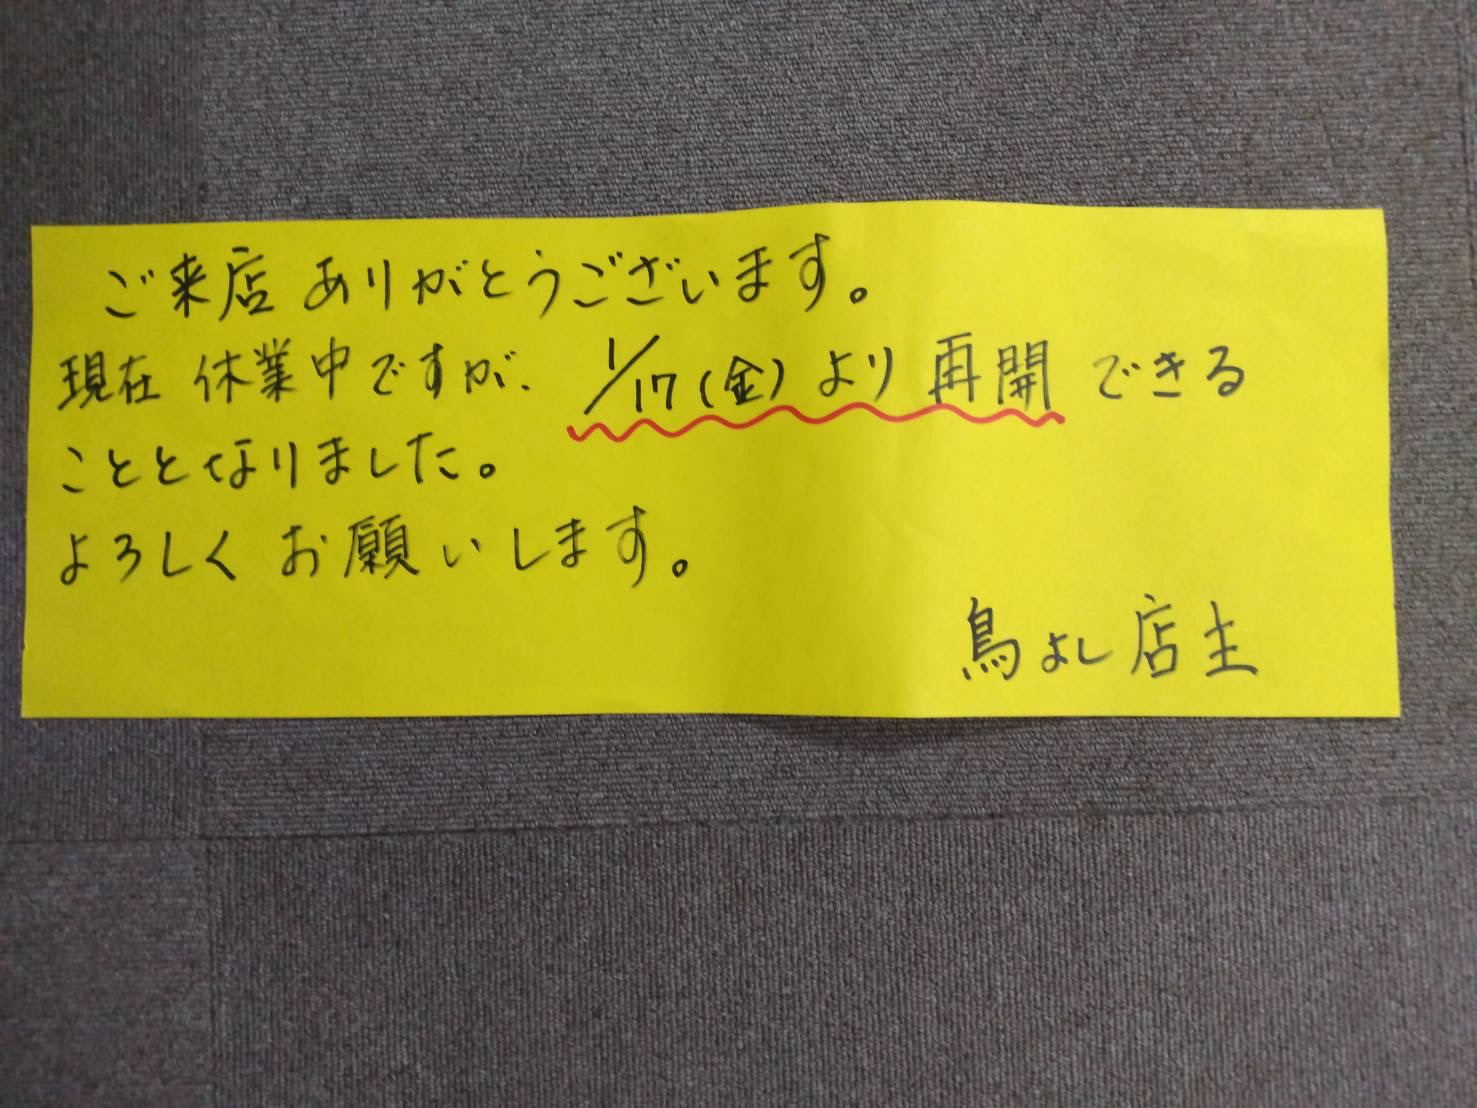 ご来店ありがとうございます。
現在休業中ですが、1/17(金)より再開できる
こととなりました。
よろしくお願いします。
鳥よし店主